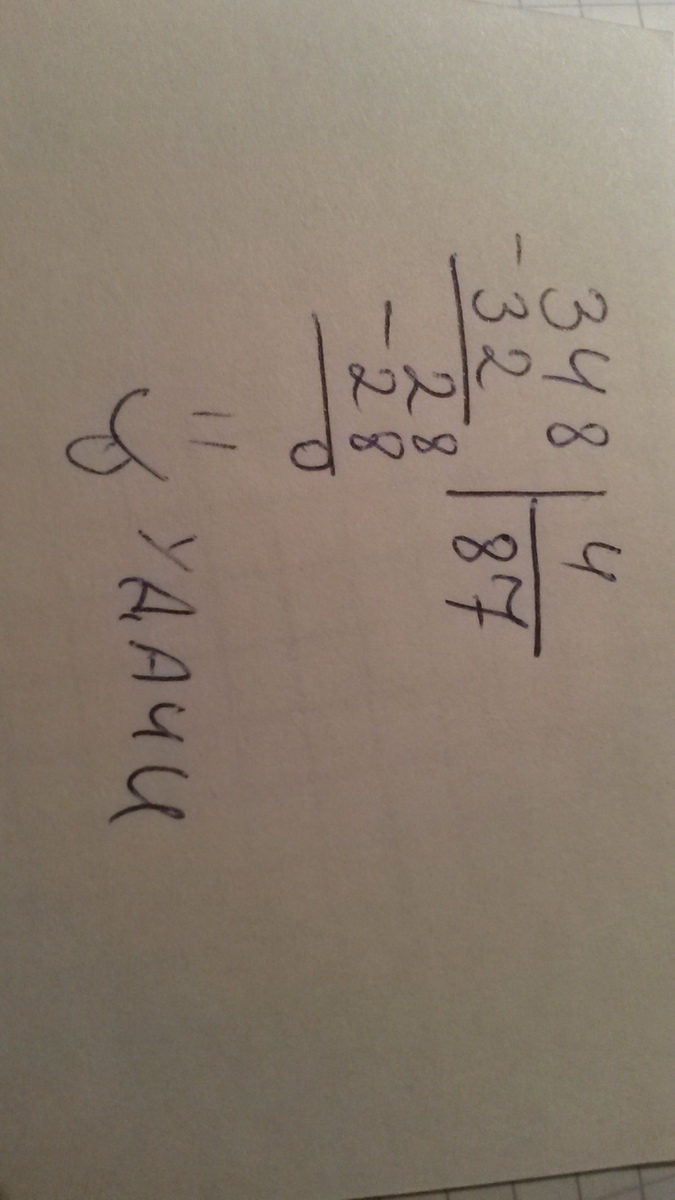 348 | 4
-32 | 87
28
-28
0
УДАЧИ